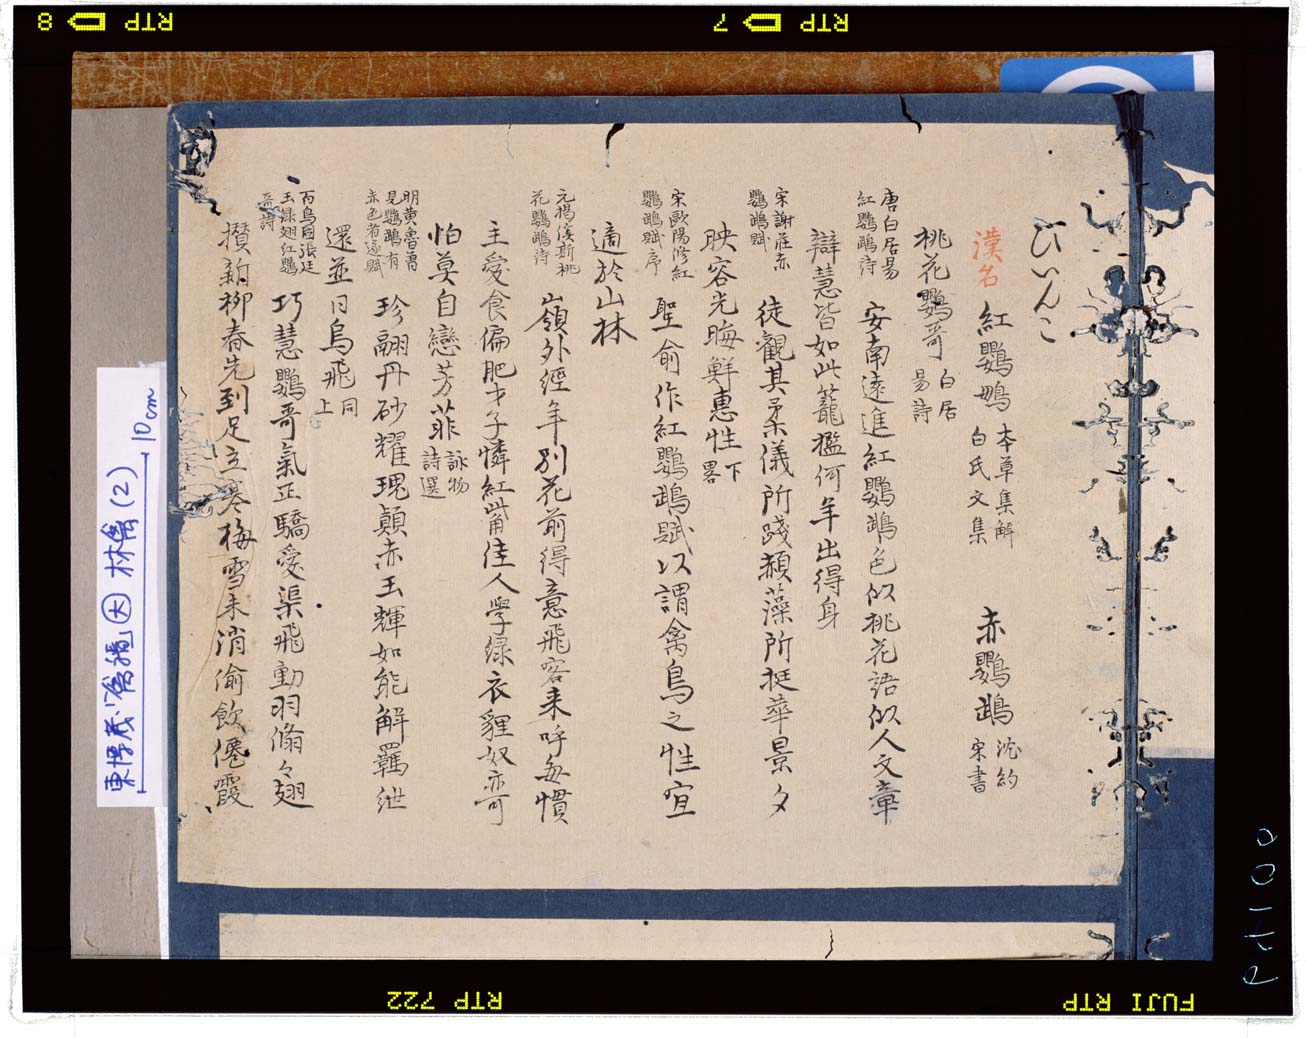 びいんこ
漢名 紅鸚鵡 本草集解 白氏文集 赤鸚鵡 沈約宋書
桃花鸚哥 白居易詩
唐白居易紅鸚鵡詩 安南遠進紅鸚鵡色似桃花語似人文章
辯慧皆如此籠檻何年出得身
宋謝莊赤鸚鵡賦 徒觀其柔儀所踐赬藻所挺華景夕
映容光晦鮮惠性 下畧
宋歐陽修紅鸚鵡賦序 聖俞作紅鸚鵡賦以謂禽鳥之性宜
適於山林
元揭傒斯桃花鸚鵡詩 嶺外經年別花前得意飛客来呼每慣
主愛食偏肥才子憐紅觜佳人學緑衣貍奴亦可
怕莫自戀芳菲 詠物詩選
明黄魯曾見鸚鵡有赤色者遂賦 珍翮丹砂耀瑰顛赤玉輝如能解羈紲
還並日烏飛 同上
丙烏囙張廷玉緑翅紅鸚哥詩 巧慧鸚哥氣正驕愛渠飛動羽翛々翅
攅新柳春先到足立寒梅雪未消偷飲僊霞
東博蔵 禽譜 因 林禽(2)
10cm
8
RTP
7
RTP
RTP 722
FUJI RTP